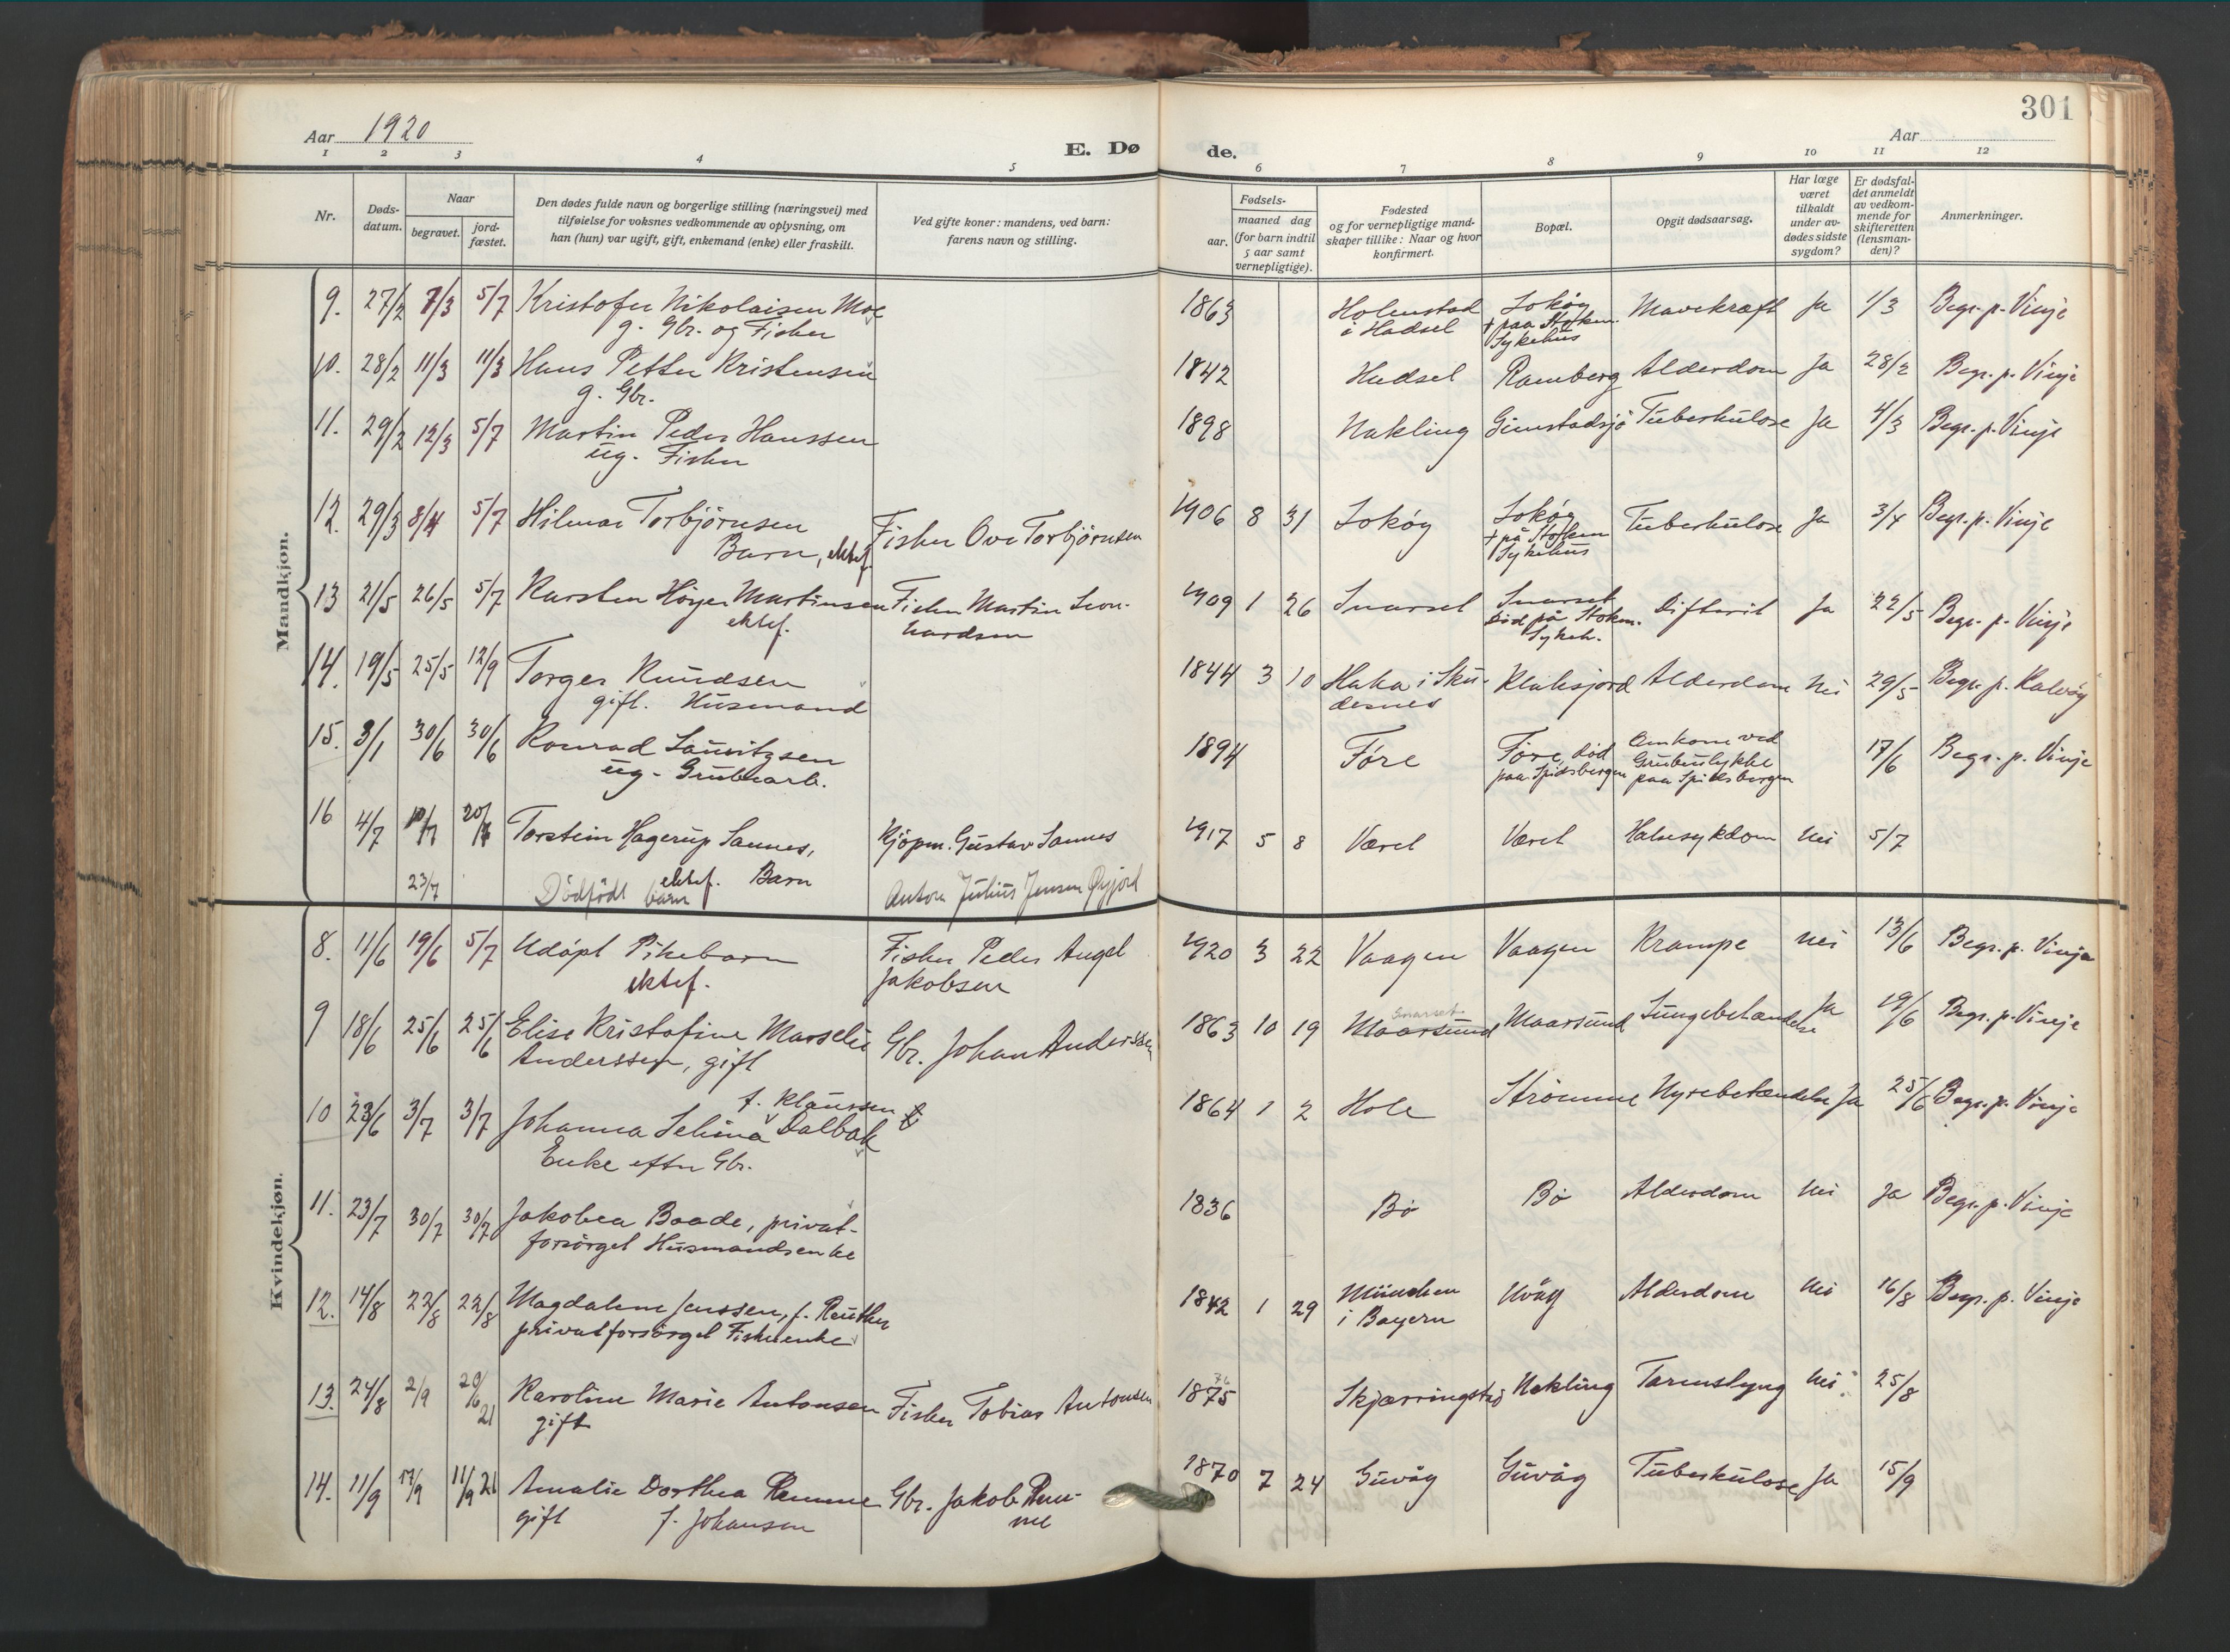 301
Aar 1920
E. Dø
de.
Aar
1 2 3 4 5 6 7 8 9 10 11 12
Nr.
Døds-
datum.
Naar
begravet.
jord-
fæstet.
Den dødes fulde navn og borgerlige stilling (næringsvei) med
tilføielse for voksnes vedkommende av oplysning, om
han (hun) var ugift, gift, enkemand (enke) eller fraskilt.
Ved gifte koner: mandens, ved barn:
farens navn og stilling.
Fødsels-
aar.
maaned dag
(for barn indtil
5 aar samt
vernepligtige).
Fødested
og for vernepligtige mand-
skaper tillike: Naar og hvor
konfirmert.
Bopæl.
Opgit dødsaarsag.
Har læge
været
tilkaldt
under av-
dødes sidste
sygdom?
Er dødsfal-
det anmeldt
av vedkom-
mende for
skifteretten
(lensman-
den)?
Anmerkninger.
Mandkjøn.
9. 27/2 7/3 5/7 Kristofer Nikolaisen Moe 1863 Holmstad Jokøy Mavekræft Ja 1/3 Begr. p. Vinje
g. Gbr. og Fisker i Hadsel + paa Stokm.
Sykehus
10. 28/2 11/3 11/3 Hans Petter Kristensen 1842 Hadsel Ramberg Alderdom Ja 28/2 Begr. p. Vinje
g. Gbr.
11. 29/2 12/3 5/7 Martin Peder Hanssen 1898 Nakling Gimstadsjø Tuberkulose Ja 4/3 Begr. p. Vinje
ug. Fisker
12. 29/3 8/4 5/7 Hilmar Torbjørnsen Fisker Ove Torbjørnsen 1906 8 31 Jokøy Jokøy Tuberkulose Ja 3/4 Begr. p. Vinje
Barn, ektef. + på Stokm
Sykehus
13 21/5 26/5 5/7 Karsten Höyer Martinsen Fisker Martin Leon- 1909 1 26 Snarset Snarset Difterit Ja 22/5 Begr. p. Vinje
ektef. hardsen død på Stokm.
Sykeh.
14. 19/5 25/5 12/9 Torger Knudsen 1844 3 10 Haka i Sku- Klaksjord Alderdom Nei 29/5 Begr. p. Kalvøy
gift. Husmand desnes
15. 3/1 30/6 30/6 Konrad Lauritzsen 1894 Føre Føre, død Omkom ved 17/6 Begr. p. Vinje
ug. Grubearb. paa Spidsbergen Grubeulykke
paa Spidsbergen
16 4/7 20/7 Torstein Hagerup Sannes, Kjöpm. Gustav Sannes 1917 5 8 Været Været Halsesykdom Nei 5/7
ektef. Barn
23/7 Dödfödt barn Anton Julius Jensen Øyjord
Kvindekjøn.
8. 11/6 19/6 5/7 Udöpt Pikebarn Fisker Peder Angel 1920 3 22 Vaagen Vaagen Krampe Nei 13/6 Begr. p. Vinje
ektef. Jakobsen
Snarset
9 18/6 25/6 25/6 Elise Kristofine Marselie Gbr. Johan Anderssen 1863 10 19 Maarsund Maarsund Lungebetændelse Ja 19/6 Begr. p. Vinje
Anderssen, gift
f. Klaussen
10 23/6 3/7 3/7 Johanna Selina Dalbak 1864 1 2 Hole Strömme Nyrebetændelse Ja 25/6 Begr. p. Vinje
Enke efter Gbr.
11. 23/7 30/7 30/7 Jakobea Baade, privat- 1836 Bø Bø Alderdom Nei Ja Begr. p. Vinje
forsörget Husmandsenke
12. 14/8 22/8 22/8 Magdalene Jenssen, f. Reuther 1842 1 29 München Uvåg Alderdom Nei 16/8 Begr. p. Vinje
privatforsörget Fiskerenke i Bayern
13. 24/8 2/9 20/6 21 Karoline Marie Antonsen Fisker Tobias Antonsen 1875 76 Skjærringstad Nakling Tarmslyng Nei 25/8
gift
14. 11/9 17/9 11/9 21 Amalie Dorthea Remme Gbr. Jakob Rem- 1870 7 24 Guvåg Guvåg Tuberkulose Ja 15/9
gift f. Johansen me